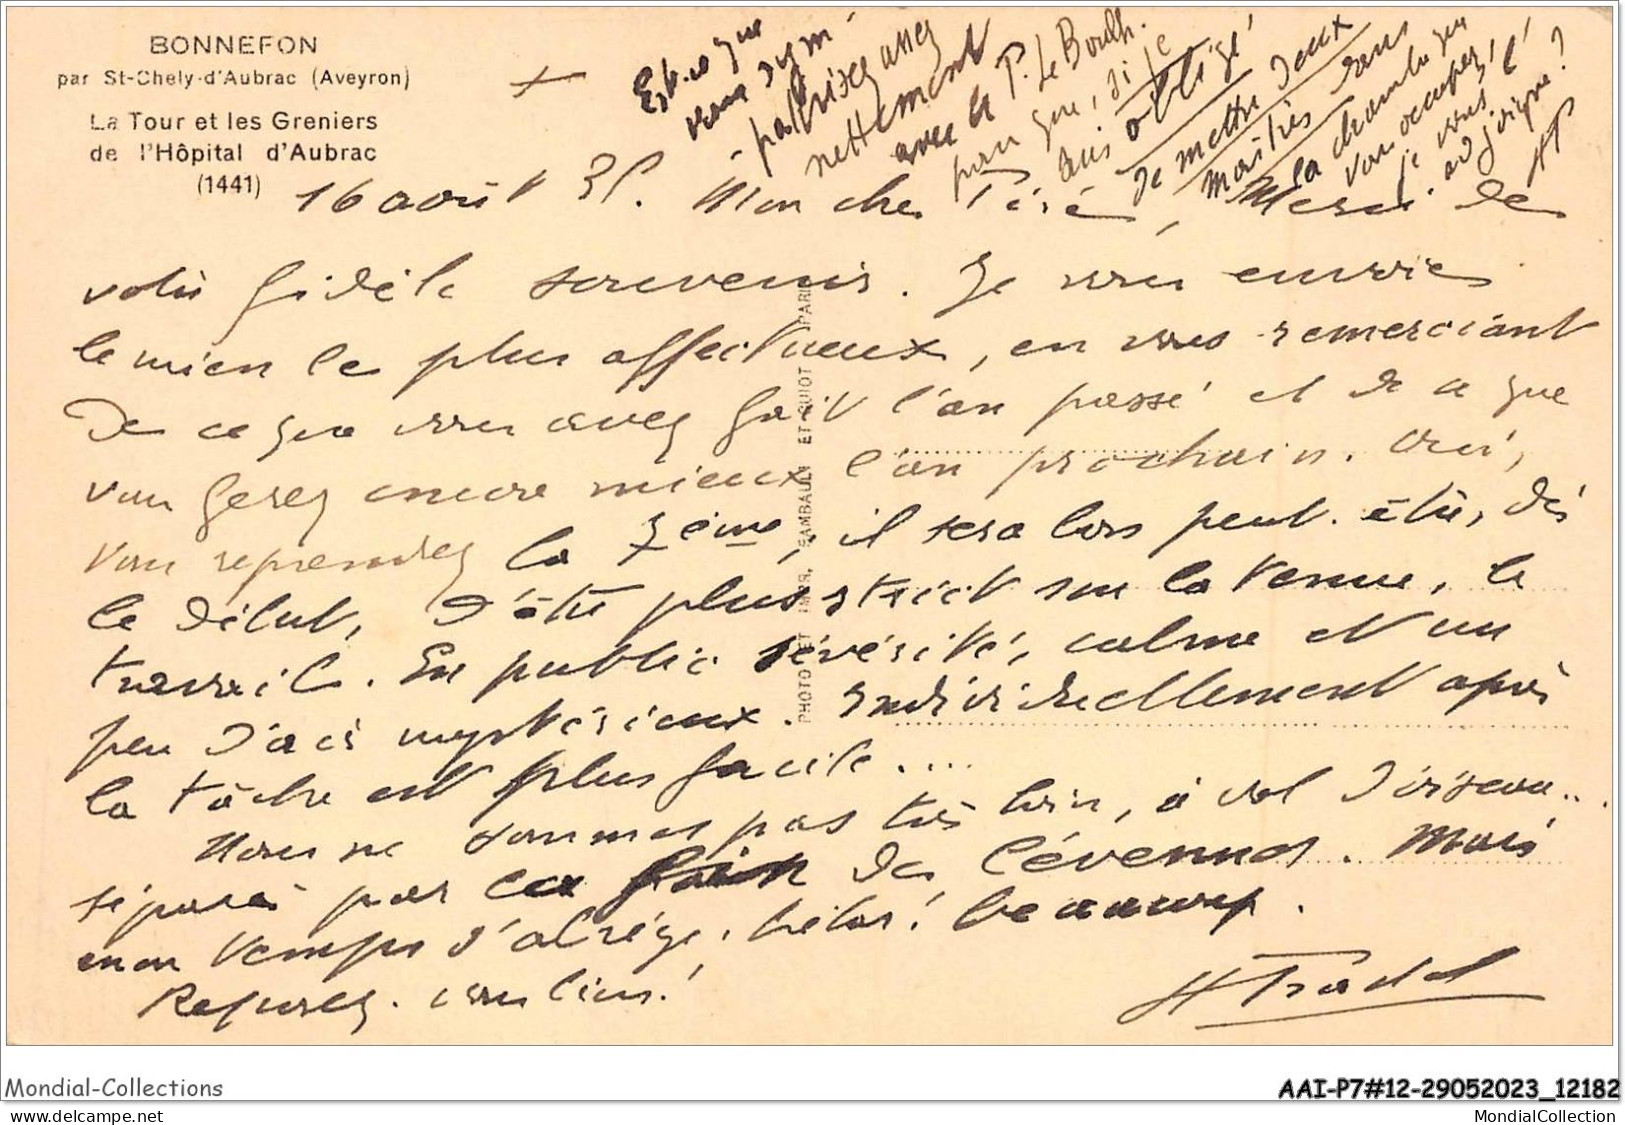 BONNEFON
par St-Chely-d'Aubrac (Aveyron)
La Tour et les Greniers
de l'Hôpital d'Aubrac
(1441)
Est-ce que
vous sympathisez assez
nettement
avec le P. Le Boulh.
pour que, si je
suis obligé
de mettre deux
maîtres dans
la chambre que
vous occupez,
je vous l'
adjoigne ?
HP
16 août 35. Mon cher Père, Merci de
votre fidèle souvenir. Je vous envoie
le mien le plus affectueux, en vous remerciant
de ce que vous avez fait l'an passé et de ce que
vous ferez encore mieux l'an prochain. Oui,
vous reprendrez la 5ème, il sera bon peut-être, dès
le début, d'être plus strict sur la tenue, le
travail. En public sévérité, calme et un
peu d'air mystérieux. Individuellement après
la tâche est plus facile....
Nous ne sommes pas très loin, à vol d'oiseau...
séparés par les des Cévennes. Mais
mon temps s'abrège, hélas! beaucoup.
Reposez-vous bien!
H Pradel
PHOTO ET IMPR. RAMBAULT ET GUIOT PARIS
Mondial-Collections
AAI-P7#12-29052023_12182
www.delcampe.net
MondialCollection